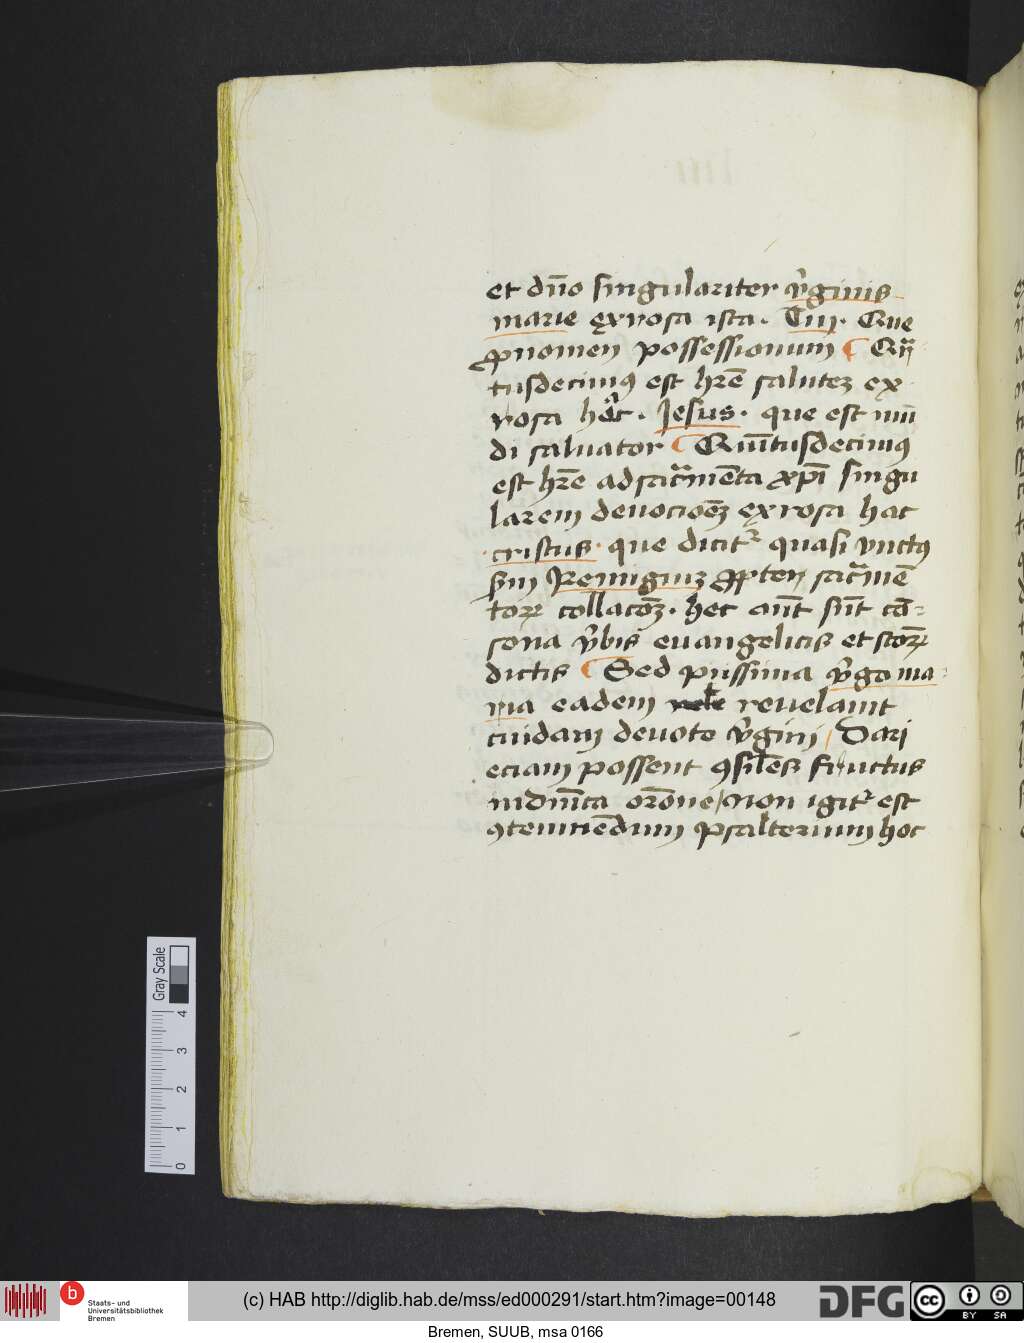 et dn̄o singulariter v̓ginis
marie ex rosa ista. Tui. Que
pronomen possessionum Qr̄
tusdecimus est hr̄e salutez ex
rosa hac. Jesus. que est mū
di saluator Quītusdecimus
est hr̄e ad sacramēta xpī singu
larem deuocioēz ex rosa hac
cristus. que dicit᷑ quasi vnctus
scdm Remigiuz propter sacramē
torum collacōēz. hec aūt sūt cō=
sona v̓bis euangelicis et sctorum
dictis Sed piissima v̓go ma=
ria eadem reuelauit
cuidam deuoto v̓gini / Dari
eciam possent cōsiles fructus
īdiuīta orōne / Non igit᷑ est
cōtemnēdum psalterium hoc
Gray Scale
0 1 2 3 4
b
Staats- und
Universitätsbibliothek
Bremen
(c) HAB http://diglib.hab.de/mss/ed000291/start.htm?image=00148
DFG
cc BY SA
Bremen, SUUB, msa 0166